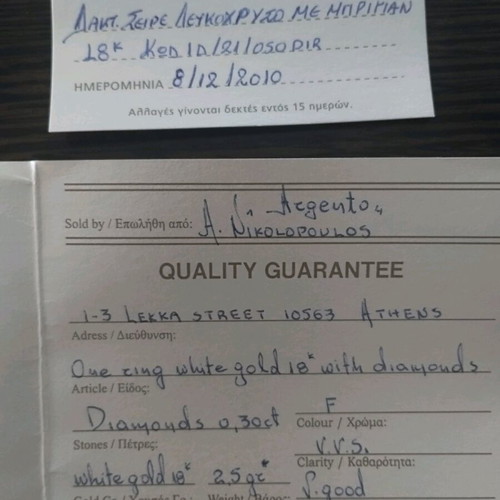 ΔΑΚΤ. ΣΕΙΡΕ ΛΕΥΚΟΧΡΥΣΟ ΜΕ ΜΠΡΙΓΙΑΝ
18Κ ΚΩΔ 1Δ/31/050DIR
ΗΜΕΡΟΜΗΝΙΑ 8/12/2010
Αλλαγές γίνονται δεκτές εντός 15 ημερών.
Argento
Sold by / Επωλήθη από: A. NIKOLOPOULOS
QUALITY GUARANTEE
1-3 LEKKA STREET 10563 ATHENS
Adress / Διεύθυνση:
One ring white gold 18K with diamonds
Article / Είδος:
Diamonds 0,30ct F
Stones / Πέτρες: Colour / Χρώμα:
V.V.S.
Clarity / Καθαρότητα:
white gold 18K 2,5gr V.good